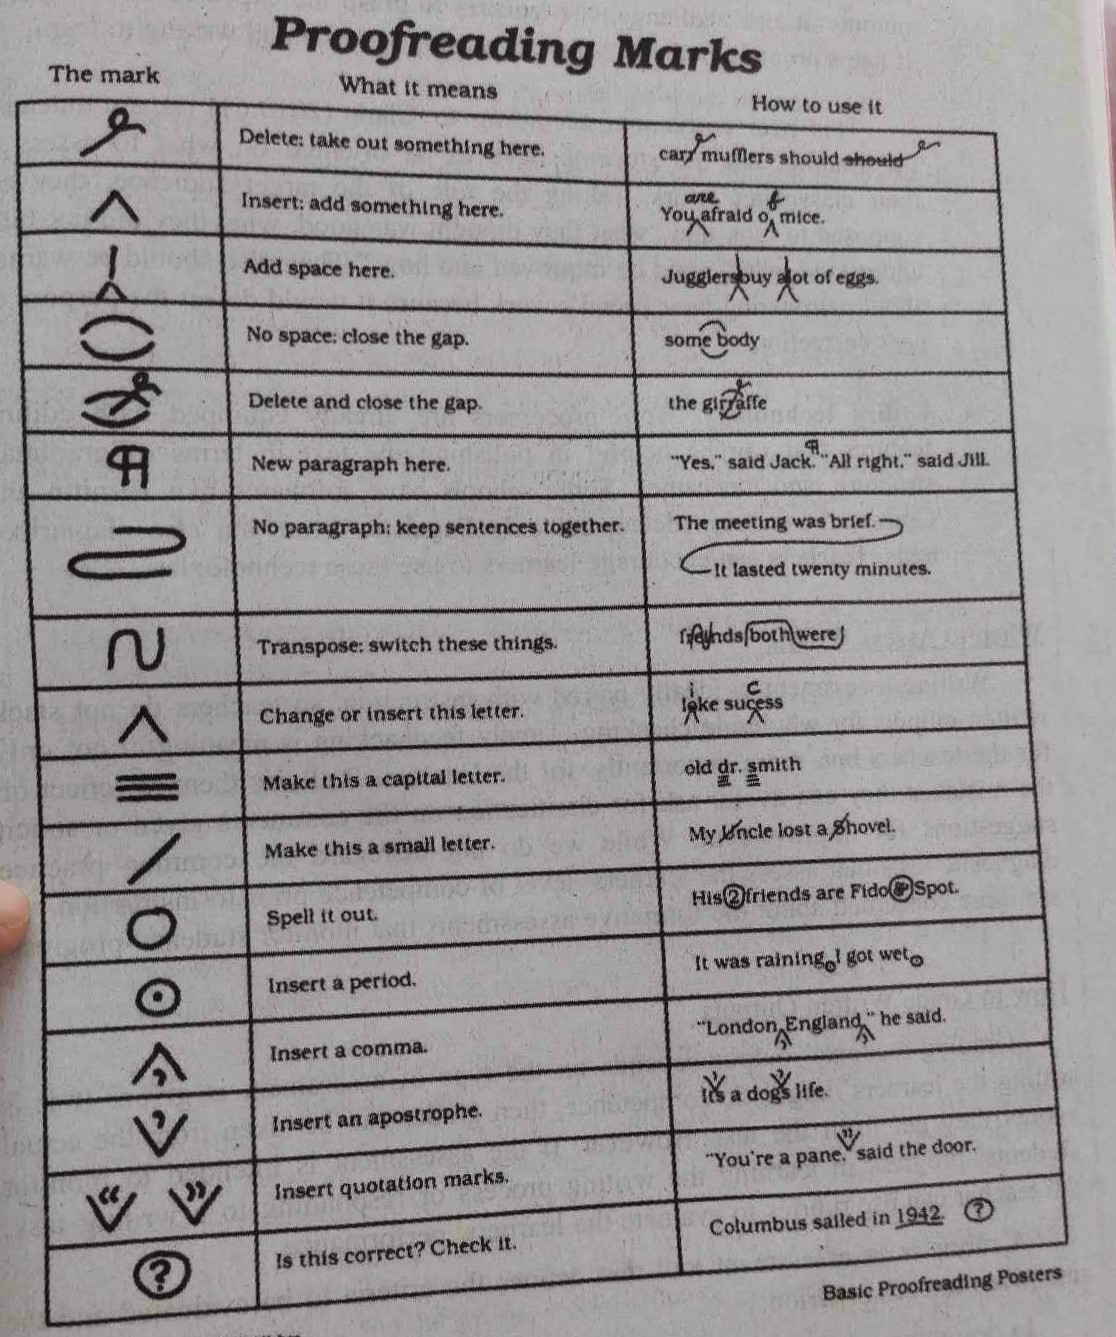 Proofreading Marks
The mark What it means How to use it
Delete: take out something here. cary mufflers should should
are f
Insert: add something here. You afraid o mice.
Add space here. Jugglersbuy alot of eggs.
No space: close the gap. some body
Delete and close the gap. the girraffe
¶ New paragraph here. "Yes," said Jack. ¶ "All right," said Jill.
No paragraph: keep sentences together. The meeting was brief.
It lasted twenty minutes.
Transpose: switch these things. freinds both were
c
Change or insert this letter. loke sucess
Make this a capital letter. old dr. smith
Make this a small letter. My Uncle lost a Shovel.
Spell it out. His 2 friends are Fido & Spot.
Insert a period. It was raining I got wet
, Insert a comma. "London, England," he said.
' Insert an apostrophe. It's a dog's life.
“ ” Insert quotation marks. "You're a pane," said the door.
? Is this correct? Check it. Columbus sailed in 1942. ?
Basic Proofreading Posters